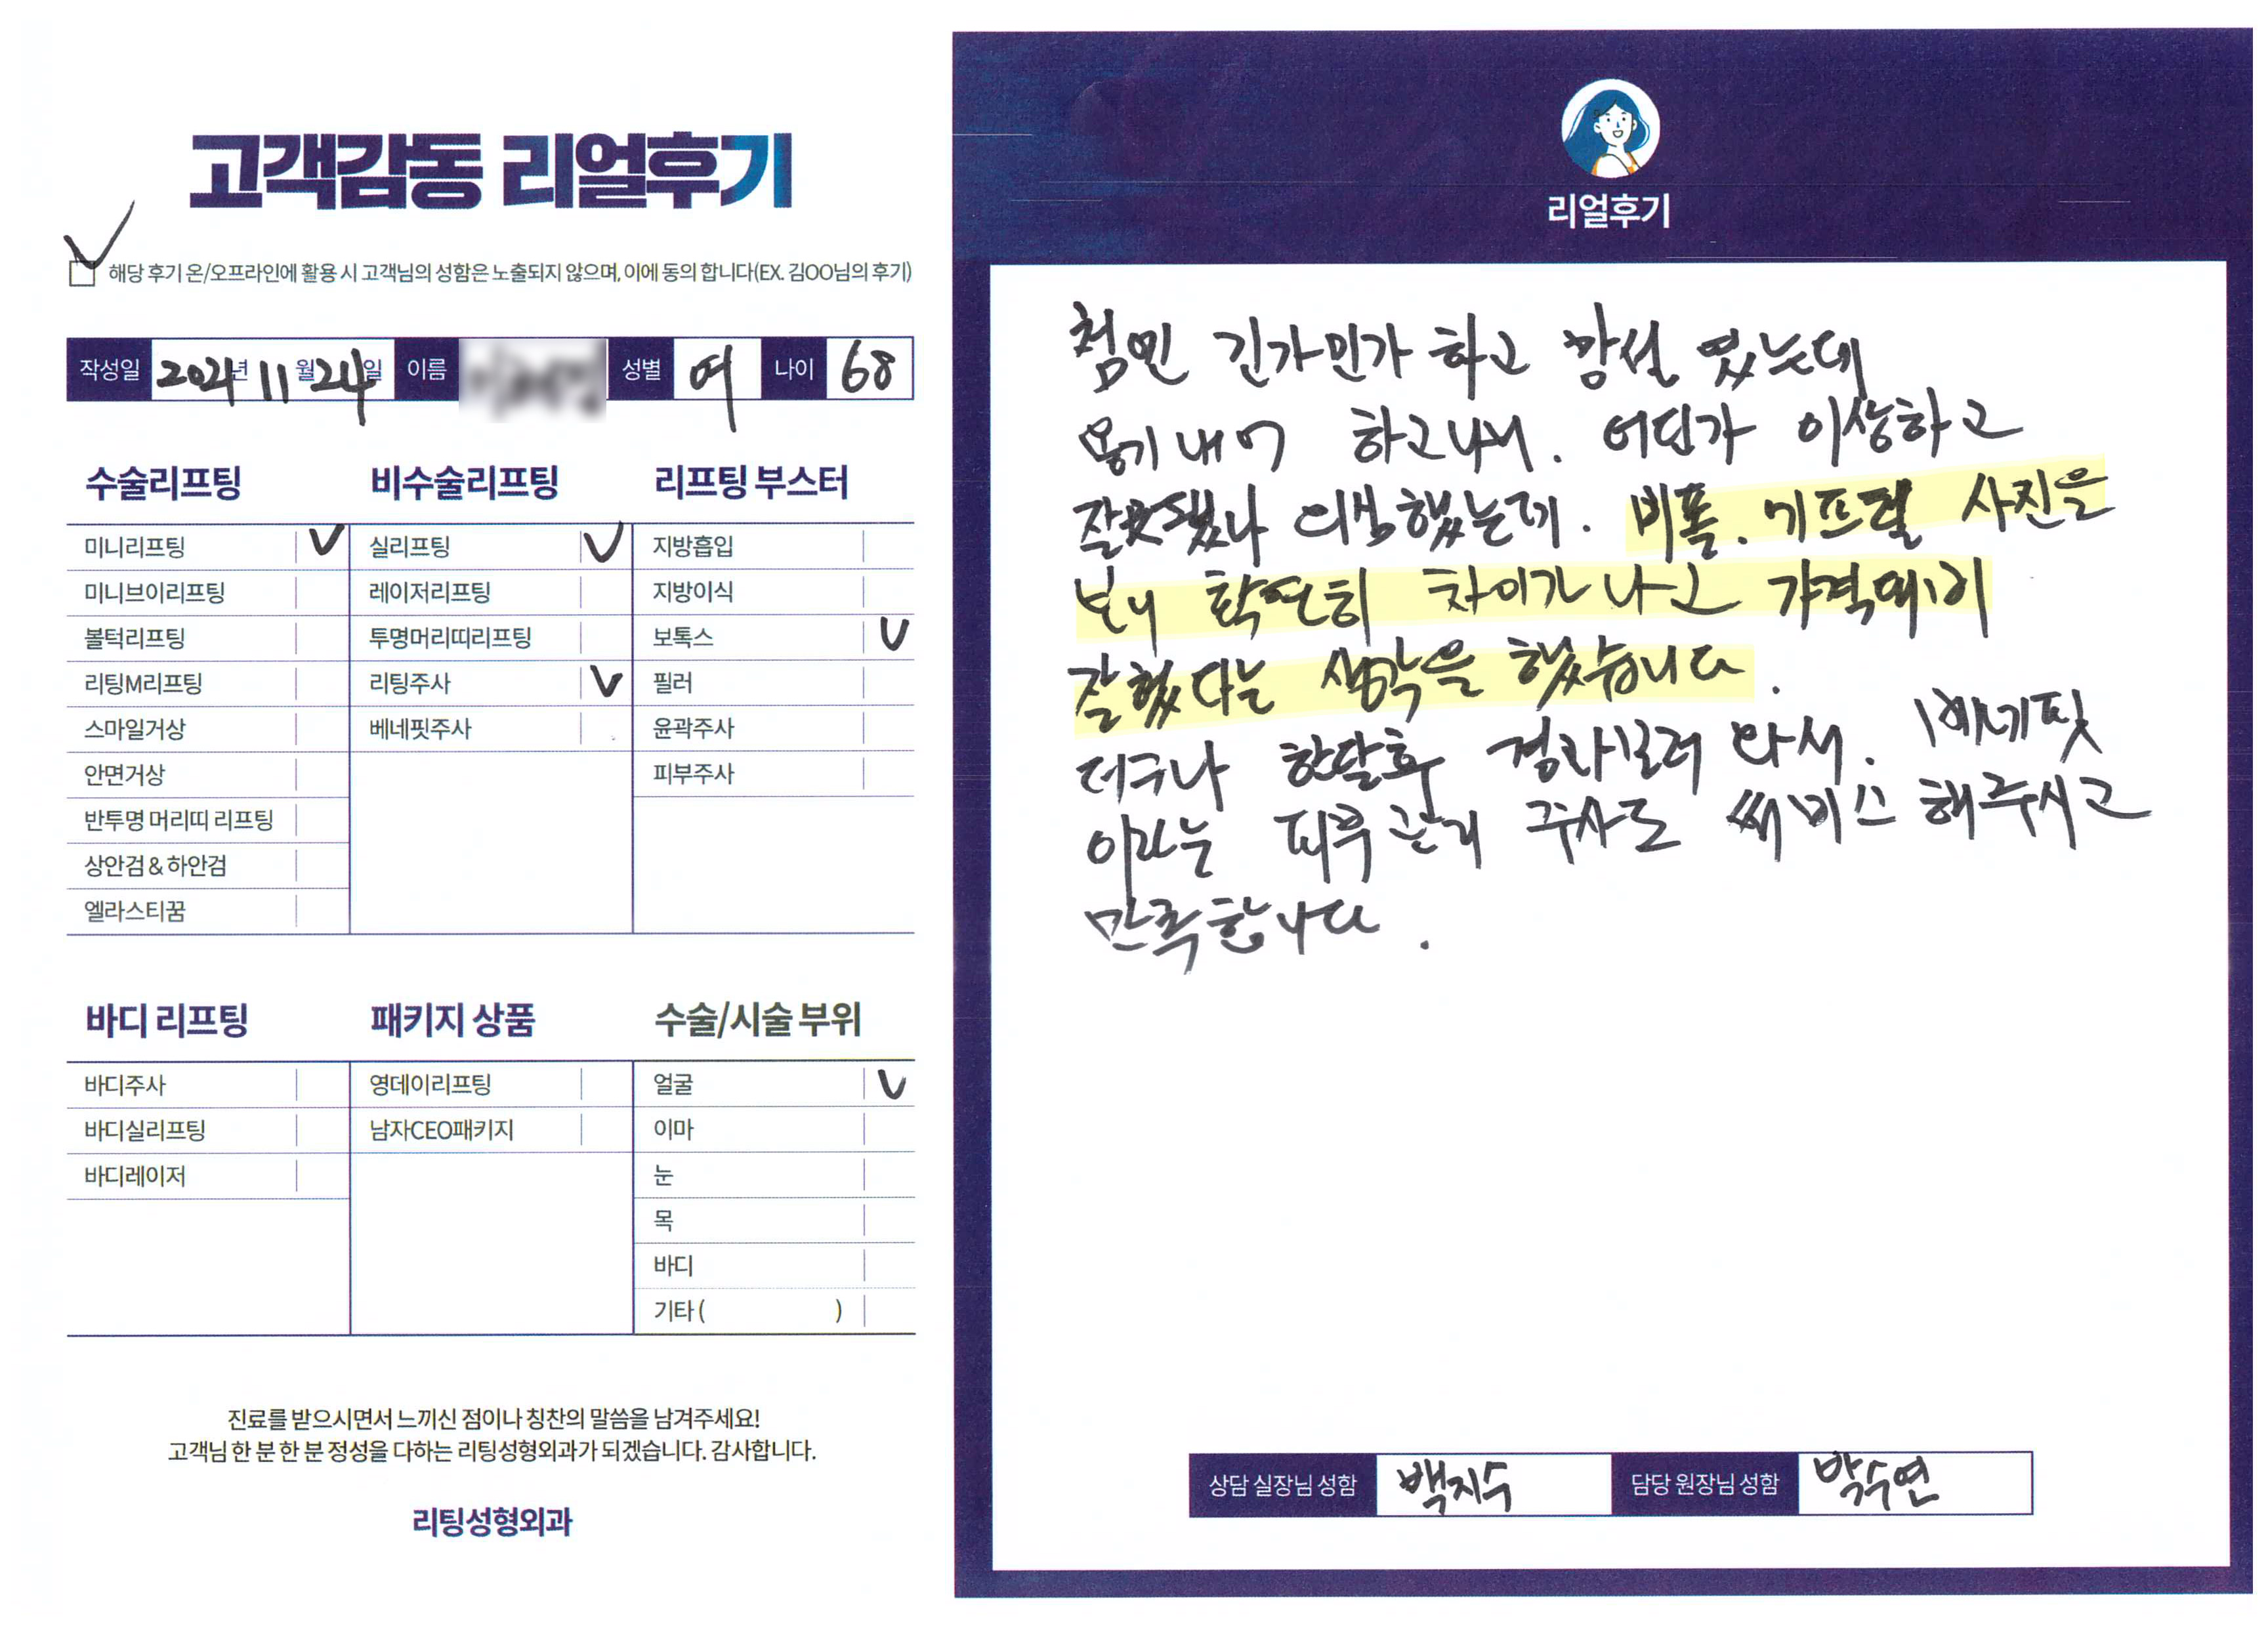 고객감동 리얼후기
해당 후기 온/오프라인에 활용 시 고객님의 성함은 노출되지 않으며, 이에 동의 합니다(EX. 김OO님의 후기)
작성일 2021년 11월 24일 이름 성별 여 나이 68
수술리프팅 비수술리프팅 리프팅 부스터
미니리프팅 V 실리프팅 V 지방흡입
미니브이리프팅 레이저리프팅 지방이식
볼턱리프팅 투명머리띠리프팅 보톡스 V
리팅M리프팅 리팅주사 V 필러
스마일거상 베네핏주사 윤곽주사
안면거상 피부주사
반투명 머리띠 리프팅
상안검 & 하안검
엘라스티꿈
바디 리프팅 패키지 상품 수술/시술 부위
바디주사 영데이리프팅 얼굴 V
바디실리프팅 남자CEO패키지 이마
바디레이저 눈
목
바디
기타 ( )
진료를 받으시면서 느끼신 점이나 칭찬의 말씀을 남겨주세요!
고객님 한 분 한 분 정성을 다하는 리팅성형외과가 되겠습니다. 감사합니다.
리팅성형외과
리얼후기
첨엔 긴가민가 하고 망설 였는데
용기내어 하고나니. 어딘가 이상하고
잘못됐나 의심했는데. 비폴. 에프털 사진을
보니 확연히 차이가 나고 가격대비
잘했다는 생각을 했습니다.
더구나 한달후 경과보러 와서. 베네핏
이라는 피부관리 주사도 써비스 해주시고
만족합니다.
상담 실장님 성함 백지수 담당 원장님 성함 박수연